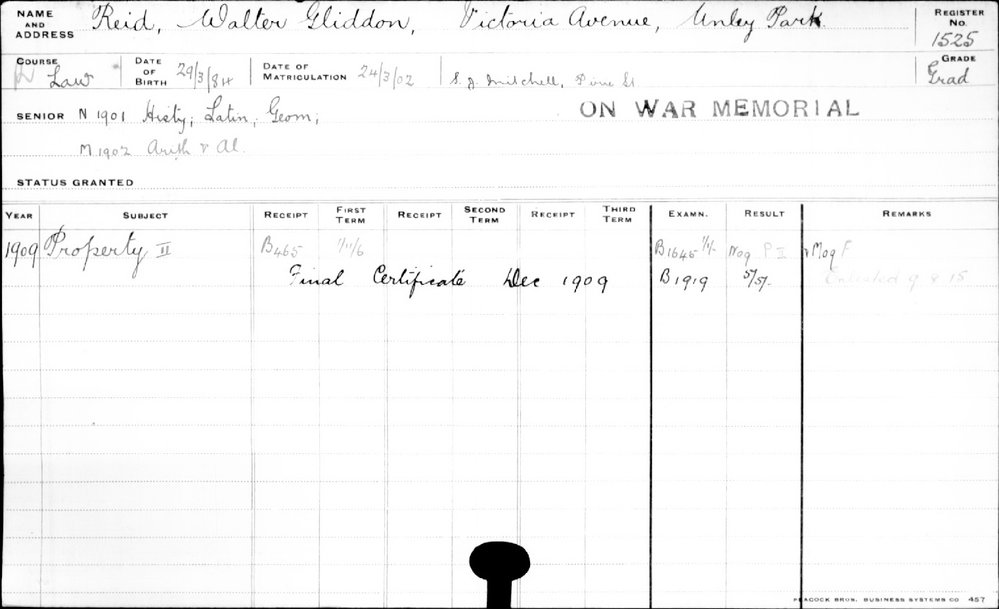 NAME AND ADDRESS Reid, Walter Gliddon, Victoria Avenue, Unley Park REGISTER No. 1525
COURSE Law DATE OF BIRTH 29/3/84 DATE OF MATRICULATION 24/3/02 S. J. Mitchell, Pirie St GRADE Grad
SENIOR N 1901 Histy, Latin, Geom, ON WAR MEMORIAL
M 1902 Arith & Al.
STATUS GRANTED
YEAR SUBJECT RECEIPT FIRST TERM RECEIPT SECOND TERM RECEIPT THIRD TERM EXAMN. RESULT REMARKS
1909 Property II B465 1/11/6 B1645 1/1/- Nog P II Mog F
Final Certificate Dec 1909 B1919 5/5/- Enlisted 9 & 15
PEACOCK BROS. BUSINESS SYSTEMS CO 457